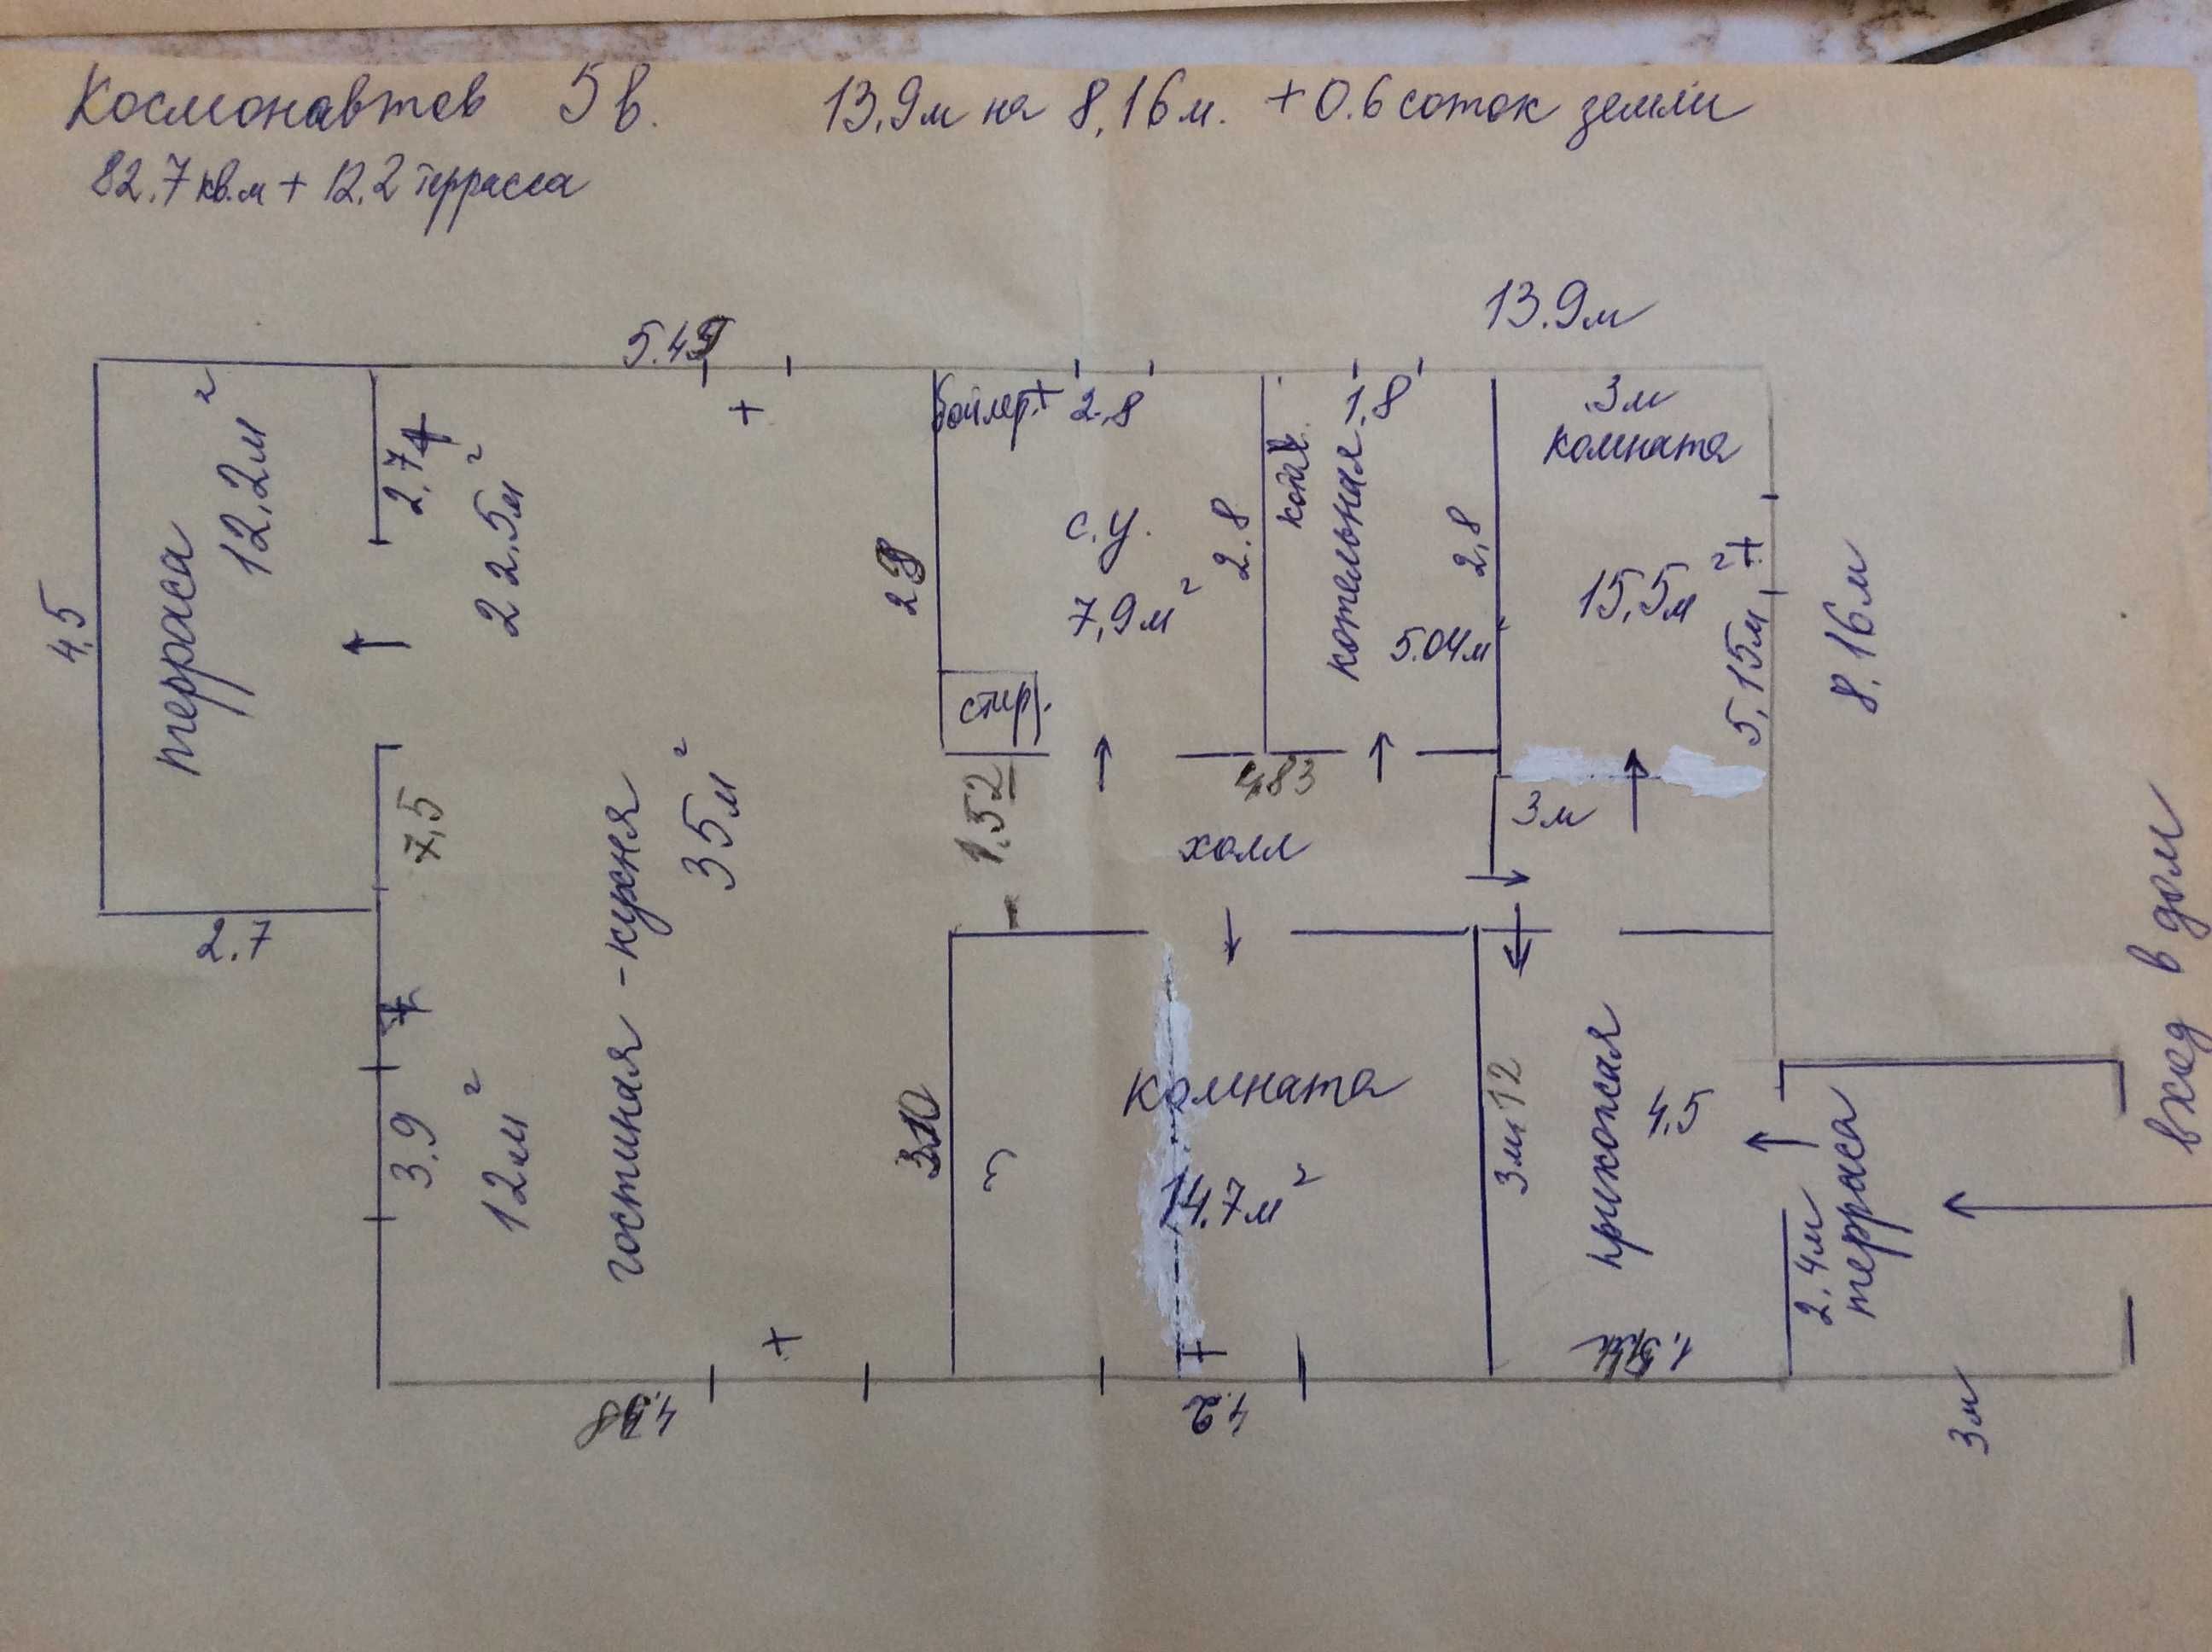 Космонавтов 5в. 13,9м на 8,16м. +0.6 соток земли
82.7 кв.м + 12.2 террасса
13.9м
5.45
4,5
терраса
12,2м²
2.7
2.7
22.5м²
7,5
3.9
12м²
гостиная - кухня
35м²
бойлер+ 2.8
2,8
с.у.
7,9м²
2.8
стир.
1.52
котельная 1.8
5.04м
2,8
3м
комната
15,5м²
5,15м
8.16м
4,83
холл
3м
3.10
комната
14.7м²
3м12
прихожая
4.5
2.4м
терраса
вход в дом
3м
4.2